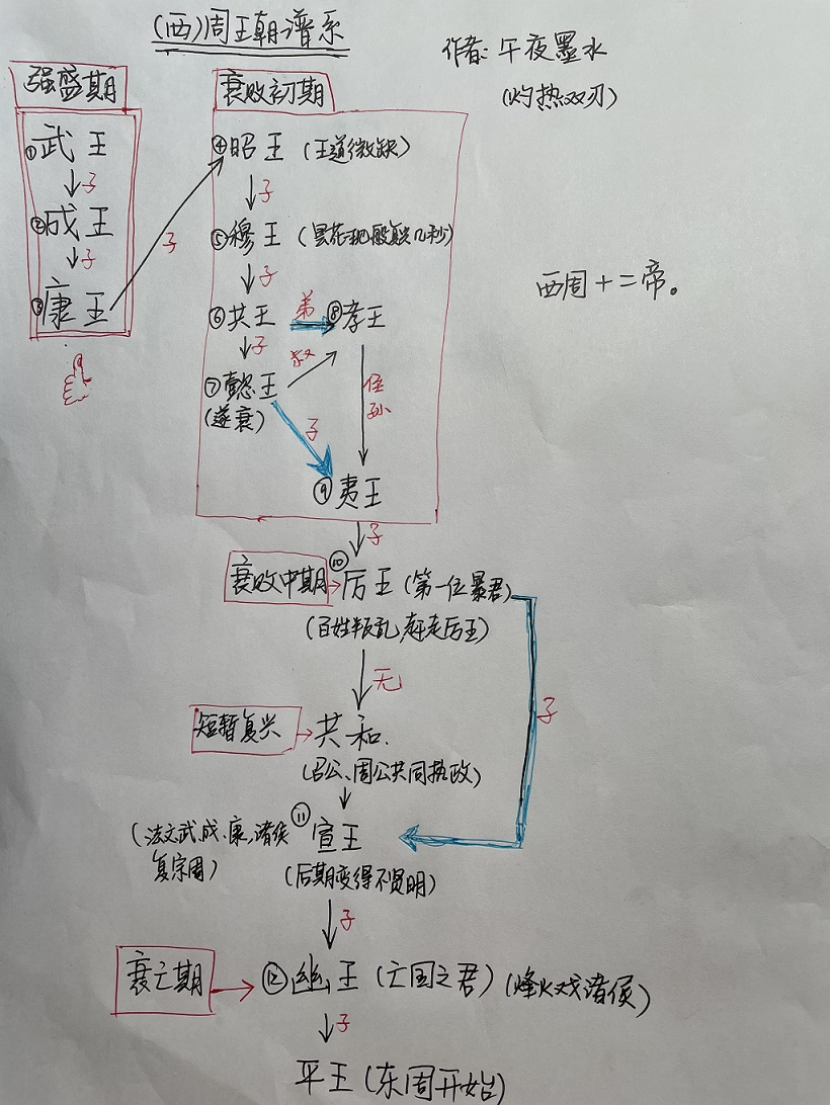 (西)周王朝谱系
作者: 午夜墨水
(灼热双刃)
强盛期
①武王
子
②成王
子
③康王
子
衰败初期
④昭王 (王道微缺)
子
⑤穆王
子
⑥共王 弟 ⑧孝王
子
⑦懿王
(遂衰)
子
侄
孙
⑨夷王
西周十二帝。
子
衰败中期 ⑩厉王 (第一位暴君)
(百姓叛乱,赶走厉王)
无
子
短暂复兴 共和.
(召公、周公共同执政)
(法文武成、康,诸侯
复宗周)
⑪宣王
(后期变得不贤明)
子
衰亡期 ⑫幽王 (亡国之君) (烽火戏诸侯)
子
平王 (东周开始)